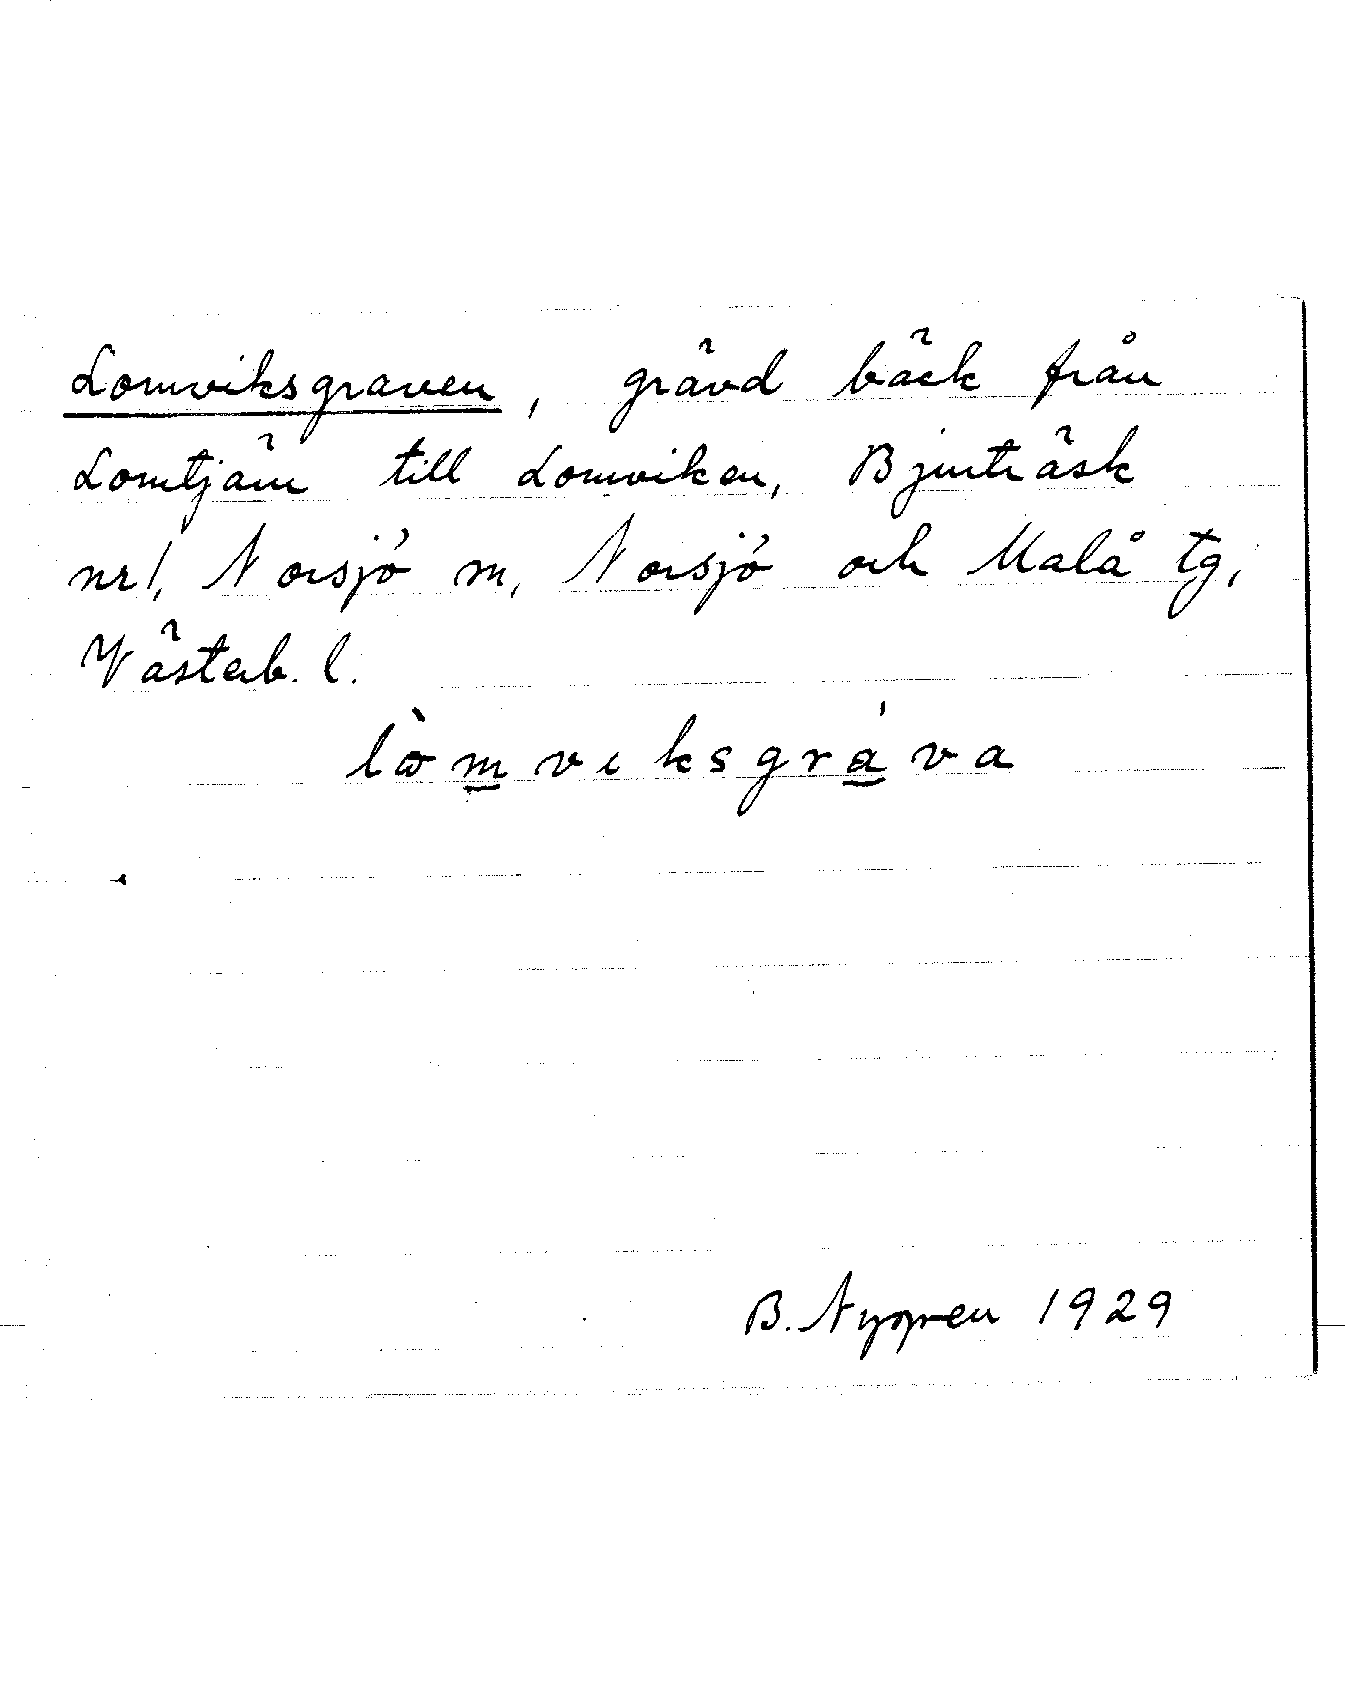 Lomviksgraven, grävd bäck från
Lomtjärn till Lomviken, Bjurträsk
nr 1, Norsjö sn, Norsjö och Malå tg,
Västerb. l.
B. Nygren 1929